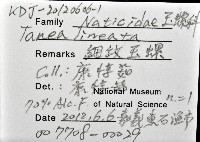 KDJ-20120606-1
Family Naticidae 玉螺科
Tanea lineata
Remarks 細紋玉螺
Coll.: 康
Det.: 康 National Museum
70% Alc. F. of Natural Science n=1
Date 2012.6.6 嘉義東石漁市
007708-00029